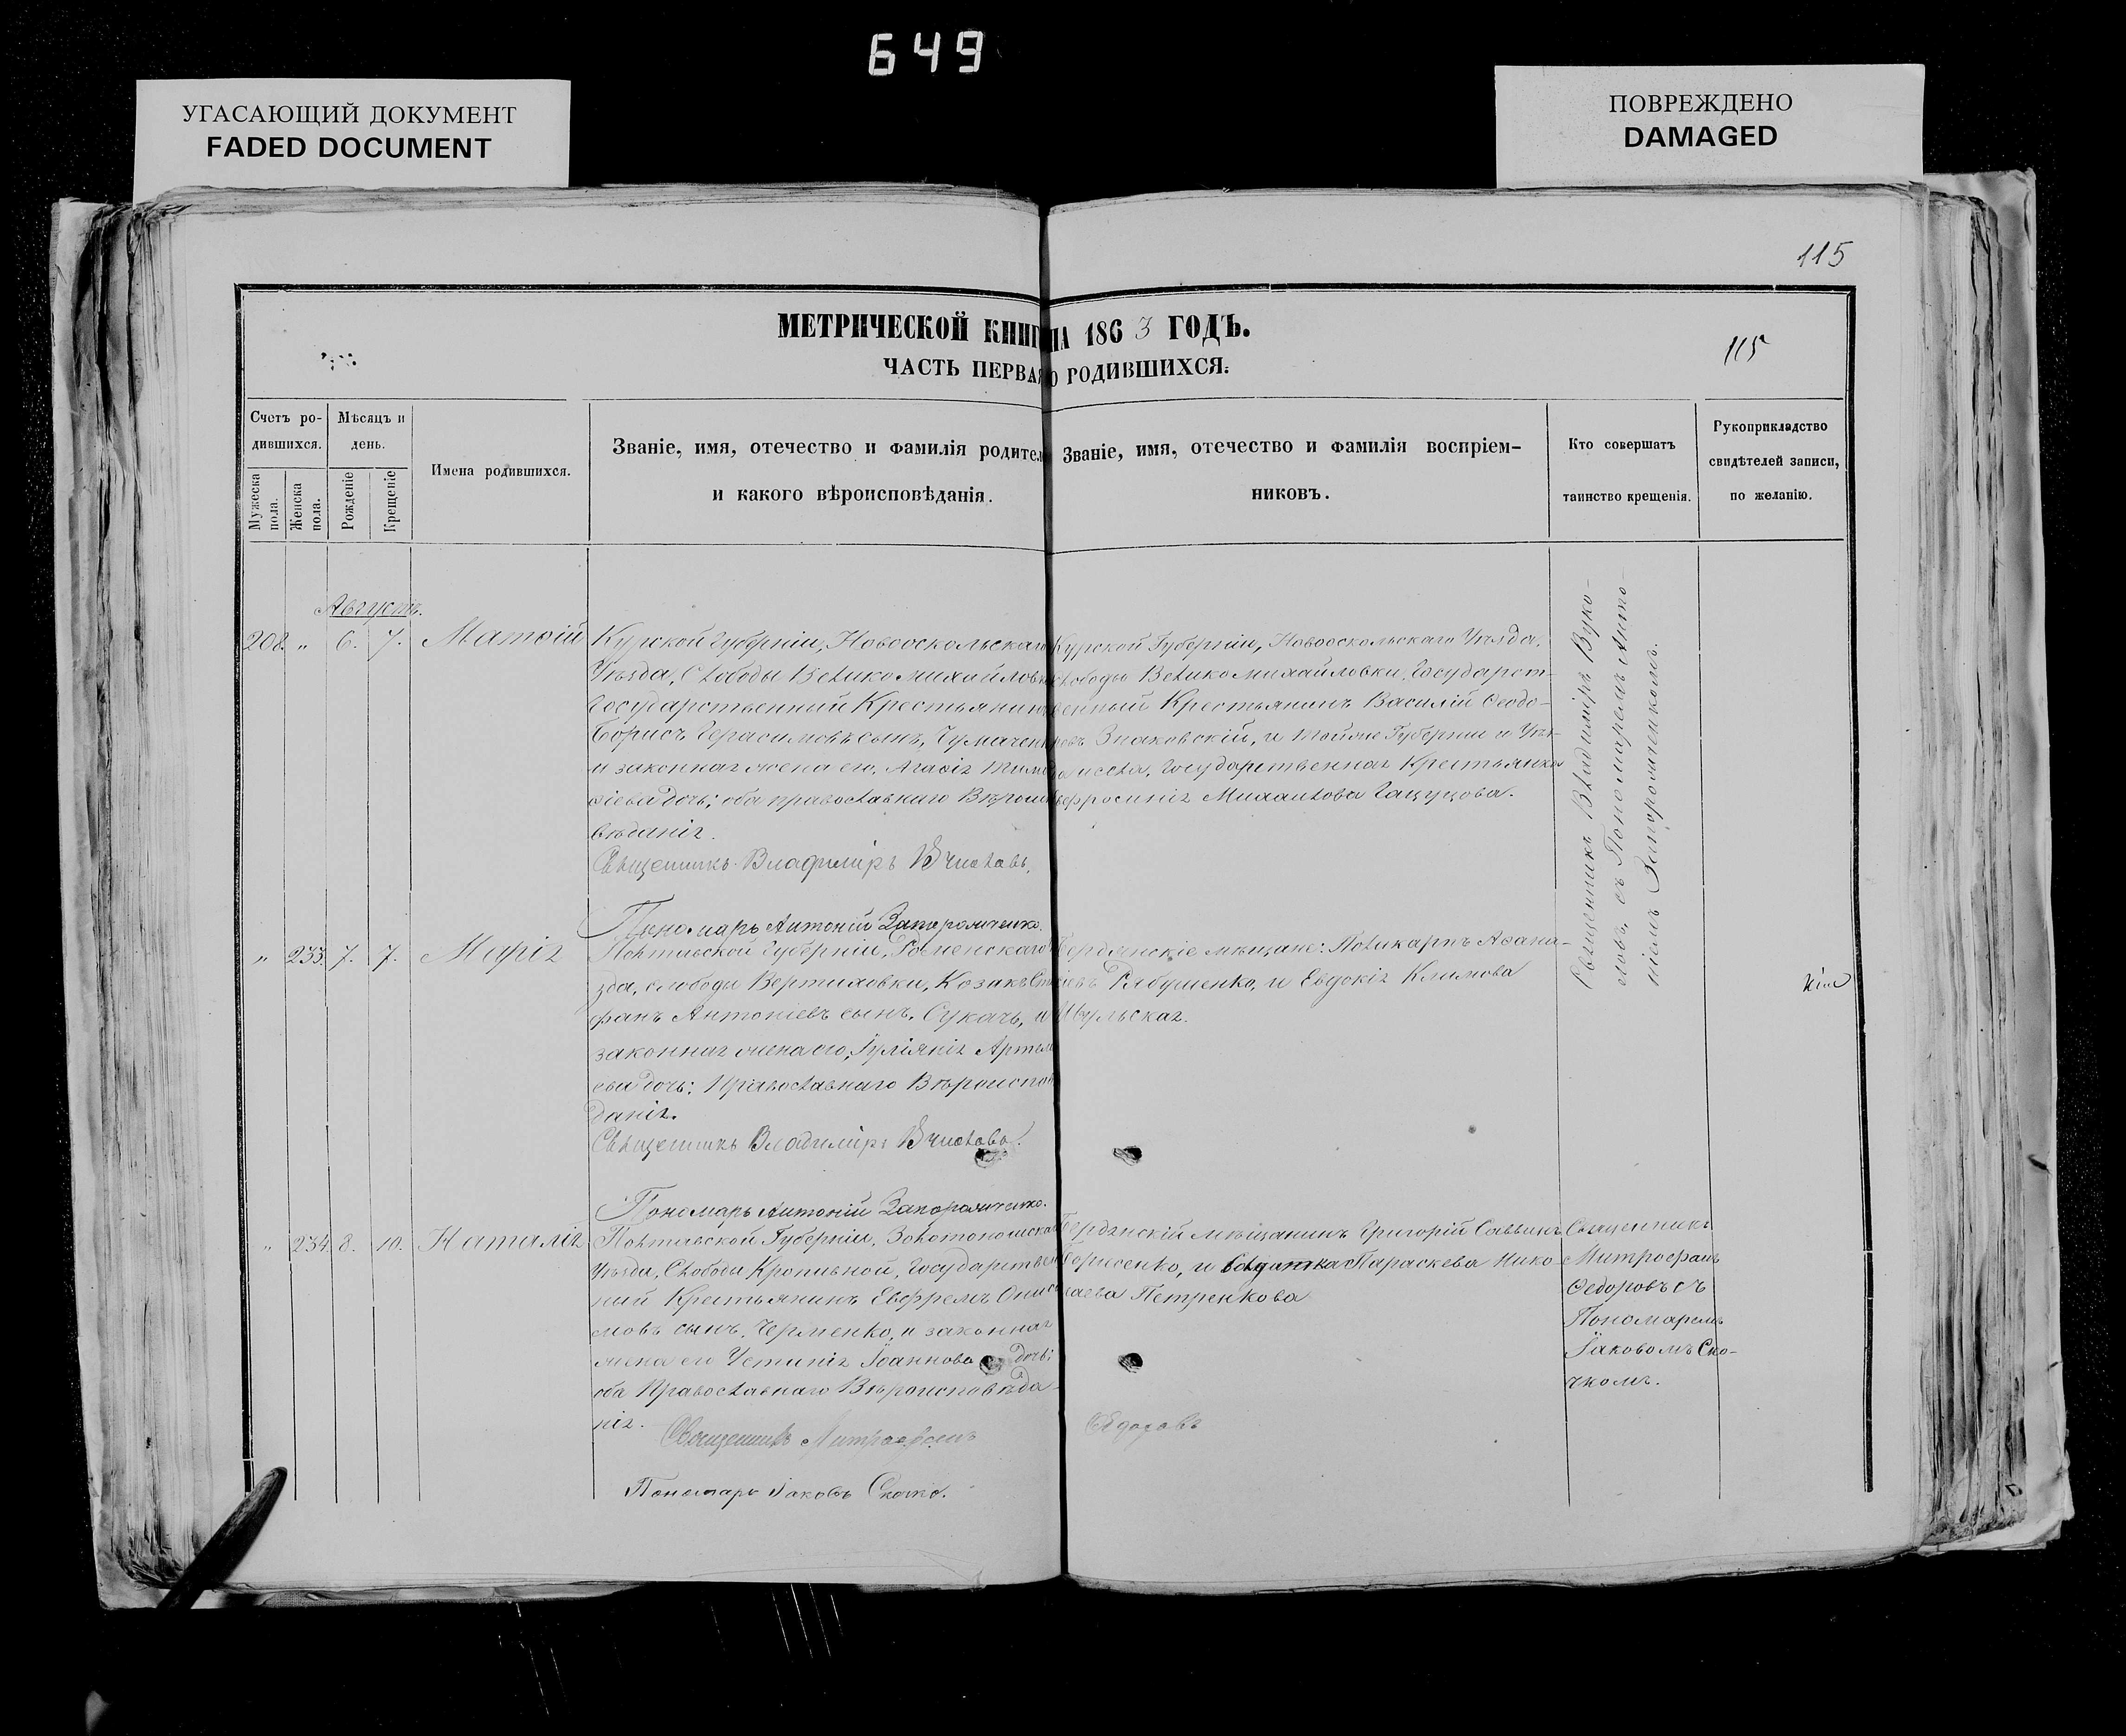 649
УГАСАЮЩИЙ ДОКУМЕНТ
FADED DOCUMENT
ПОВРЕЖДЕНО
DAMAGED
115
МЕТРИЧЕСКОЙ КНИГ НА 1863 ГОДЪ.
115
ЧАСТЬ ПЕРВАЯ О РОДИВШИХСЯ.
Счетъ ро-
дившихся.
Мужеска
пола.
Женска
пола.
Мѣсяцъ и
день.
Рожденіе
Крещеніе
Имена родившихся.
Званіе, имя, отечество и фамилія родител
и какого вѣроисповѣданія.
Званіе, имя, отечество и фамилія воспріем-
никовъ.
Кто совершатъ
таинство крещенія.
Рукоприкладство
свидѣтелей записи,
по желанію.
Августъ.
208. „ 6. 7. Матѳій
Курской Губерніи, Новооскольскаго
Уѣзда, Слободы Великомихайловки
Государственный Крестьянинъ
Борисъ Герасимовъ сынъ,
и законная жена его, Агаѳія Тимо
ѳіева дочь; оба православнаго Вѣроиспо
вѣданія.
Священникъ Владиміръ
Пономарь Антоній Запорожченко.
Курской Губерніи, Новооскольскаго Уѣзда,
слободы Великомихайловки, Государст-
венный Крестьянинъ Василій Ѳеодо-
ровъ Знаковскій, и тойже Губерніи и Уѣз-
да села, Государственная Крестьянка
Ефросинія Михаилова
Священникъ Владиміръ Вуко-
ловъ, съ Пономаремъ Анто
ніемъ Запорожченкомъ.
„ 233. 7. 7. Марія
Полтавской Губерніи, Роменскаго
зда, слободы Вертиховки, Козакъ Сте
фанъ Антоніевъ сынъ, Сукачь, и
законная жена его, Іуліянія Артем
ева дочь; Православнаго Вѣроиспов
данія.
Священникъ Владиміръ
Пономарь Антоній Запорожченко.
Бердянскіе мѣщане: Поликарпъ Аѳана-
сіевъ Рябушенко, и Евдокія Климова
Шульская.
„ 234. 8. 10. Наталія
Полтавской Губерніи, Золотоношска
Уѣзда, Слободы Кропивной, Государствен
ный Крестьянинъ Евфремъ Ониси
мовъ сынъ, Черненко, и законная
жена его Устинія Іоаннова дочь;
оба Православнаго Вѣроисповѣда-
нія.
Священникъ Митрофанъ Ѳедоровъ
Пономарь Іаковъ Скочко.
Бердянскій мѣщанинъ Григорій Саввинъ
Борисенко, и Параскева Нико-
лаева Петренкова
Священникъ
Митрофанъ
Ѳедоровъ съ
Пономаремъ
Іаковомъ Ско-
чкомъ.